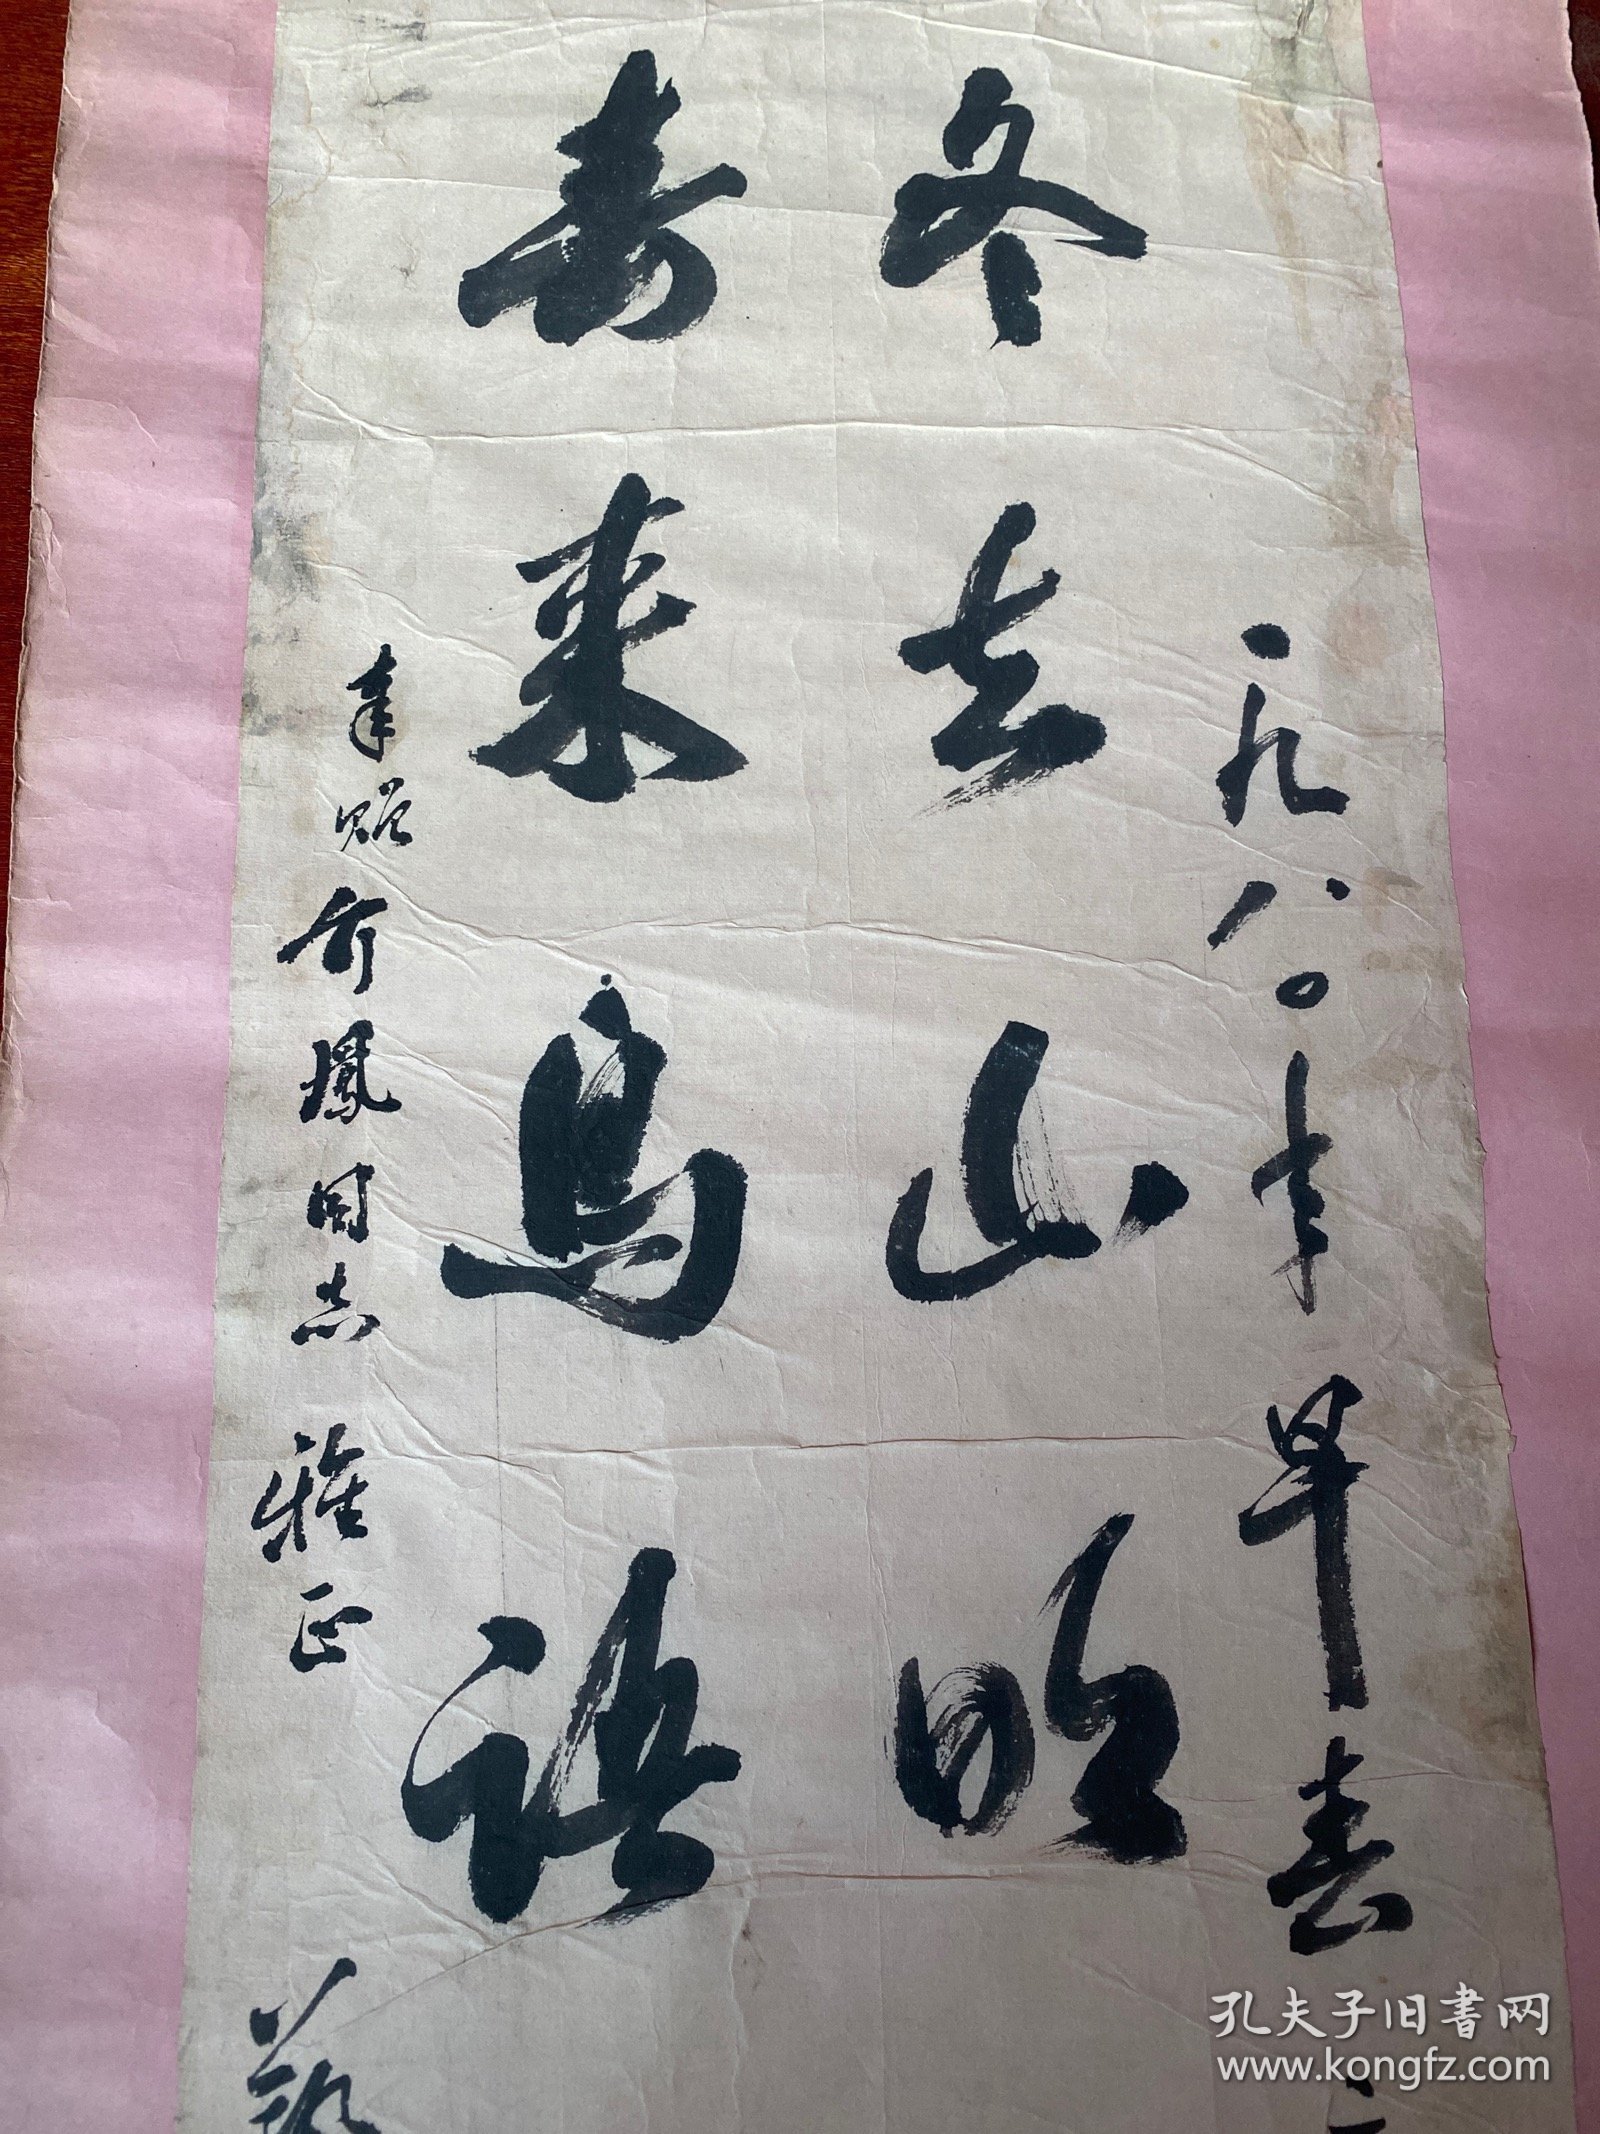 一九八〇年早春二
冬去山明
春来鸟语
奉贻
鳳同志雅正
孔夫子旧书网
www.kongfz.com